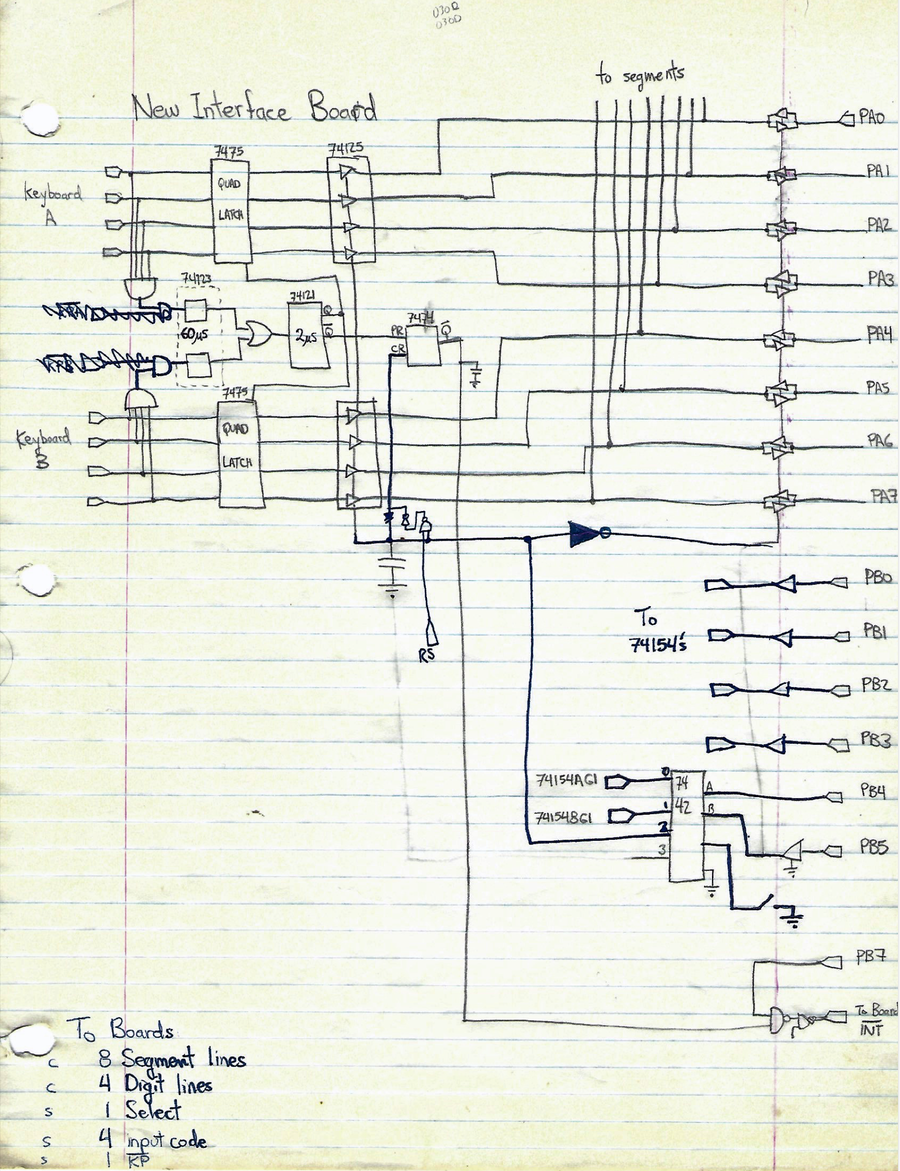 to segments
New Interface Board
PA0
7475
74125
PA1
Keyboard
A
QUAD
LATCH
PA2
PA3
74123
74121
Q
7474
60µs
2µs
Q̅
PR
CR
Q̅
PA4
7475
PA5
Keyboard
B
QUAD
LATCH
PA6
PA7
PB0
To
74154's
PB1
RS
PB2
PB3
74154AG1
0
74
42
A
PB4
74154BG1
1
B
2
3
PB5
PB7
To Board
I̅N̅T̅
To Boards
c 8 Segment lines
c 4 Digit lines
s 1 Select
s 4 input code
s 1 K̅P̅